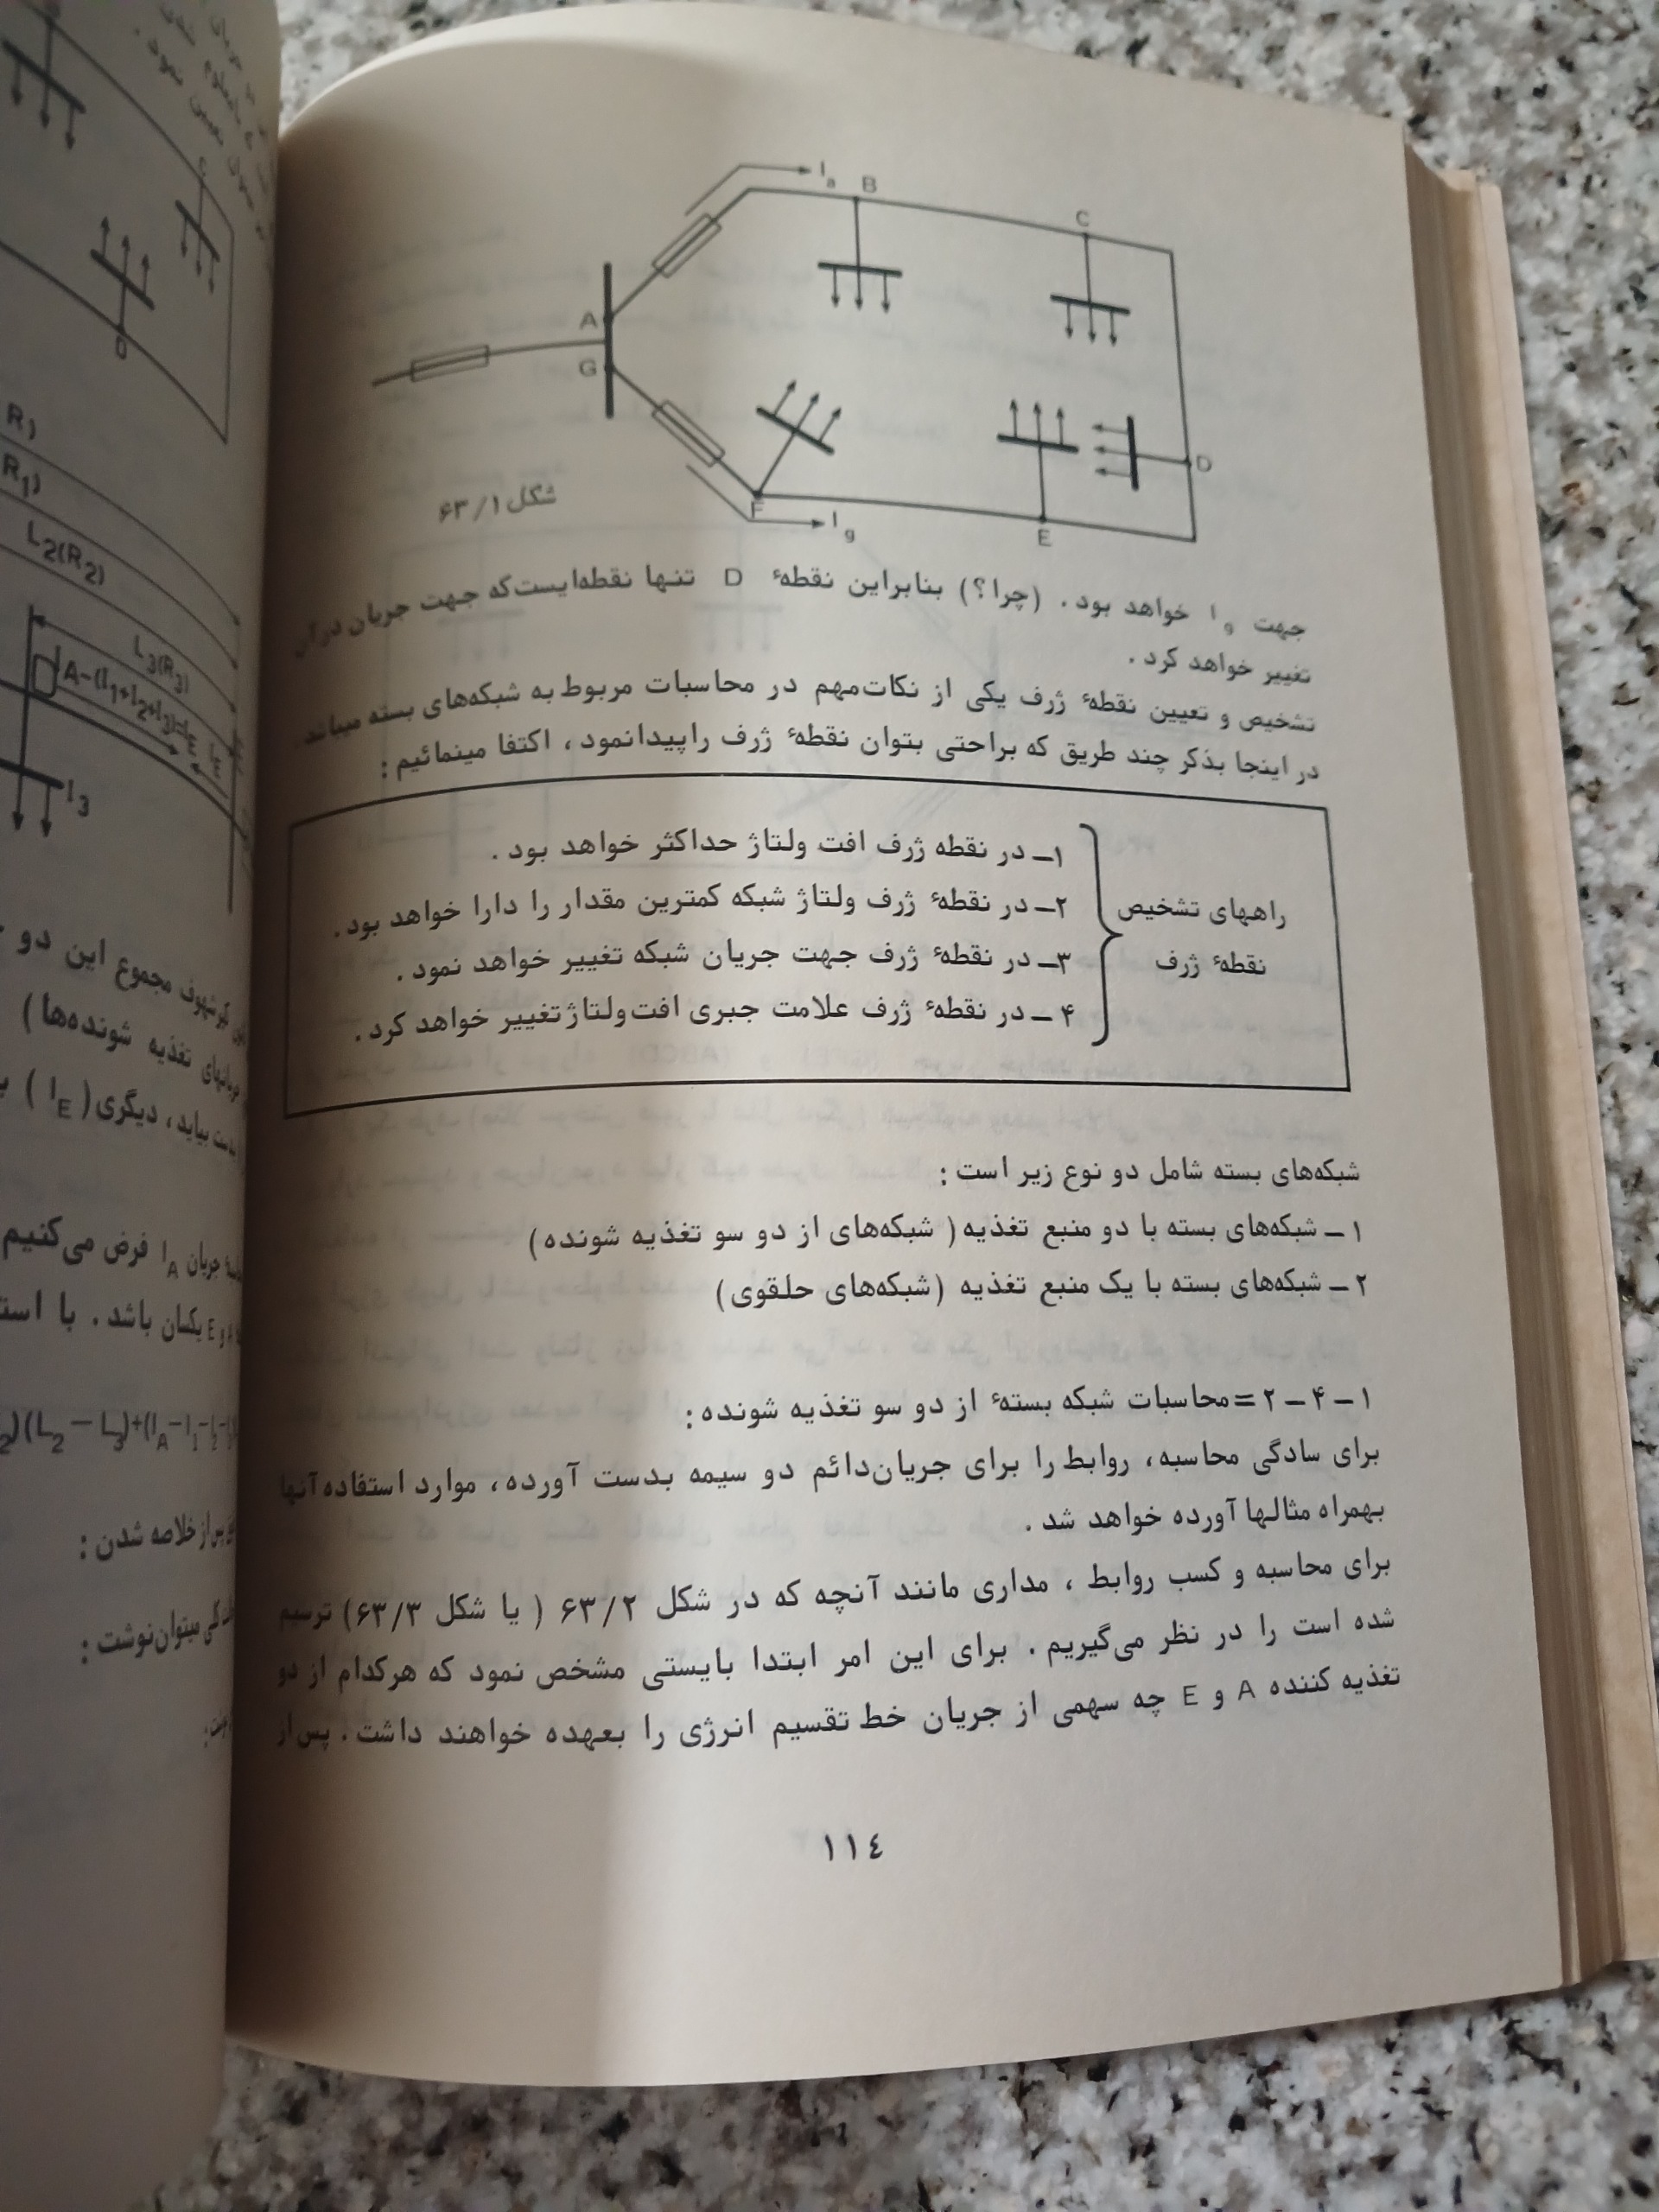 I a
B
C
A
G
D
F
I g
E
شکل ۶۳/۱
جهت I g خواهد بود . (چرا؟) بنابراین نقطهٔ D تنها نقطه‌ایست‌که جهت جریان درآن
تغییر خواهد کرد .
تشخیص و تعیین نقطهٔ ژرف یکی از نکات‌مهم در محاسبات مربوط به شبکه‌های بسته میباشد .
در اینجا بذکر چند طریق که براحتی بتوان نقطهٔ ژرف راپیدانمود ، اکتفا مینمائیم :
راههای تشخیص
نقطهٔ ژرف
۱ــ در نقطه ژرف افت ولتاژ حداکثر خواهد بود .
۲ــ در نقطهٔ ژرف ولتاژ شبکه کمترین مقدار را دارا خواهد بود.
۳ــ در نقطهٔ ژرف جهت جریان شبکه تغییر خواهد نمود .
۴ ــ در نقطهٔ ژرف علامت جبری افت‌ولتاژتغییر خواهد کرد .
شبکه‌های بسته شامل دو نوع زیر است :
۱ ــ شبکه‌های بسته با دو منبع تغذیه ( شبکه‌های از دو سو تغذیه شونده)
۲ ــ شبکه‌های بسته با یک منبع تغذیه (شبکه‌های حلقوی)
۱ ــ ۴ ــ ۲ = محاسبات شبکه بستهٔ از دو سو تغذیه شونده :
برای سادگی محاسبه، روابط را برای جریان‌دائم دو سیمه بدست آورده، موارد استفاده آنها
بهمراه مثالها آورده خواهد شد .
برای محاسبه و کسب روابط ، مداری مانند آنچه که در شکل ۶۳/۲ ( یا شکل ۶۳/۳) ترسیم
شده است را در نظر می‌گیریم . برای این امر ابتدا بایستی مشخص نمود که هرکدام از دو
تغذیه کننده A و E چه سهمی از جریان خط تقسیم انرژی را بعهده خواهند داشت . پس‌از
۱۱٤
C
D
R)
R1)
L2(R2)
L3(R3)
I3
مجموع این دو
جریانهای تغذیه شونده‌ها )
بدست بیاید، دیگری ( IE )
جریان IA فرض می‌کنیم
E یکسان باشد . با
پس‌از خلاصه شدن :
میتوان‌نوشت :